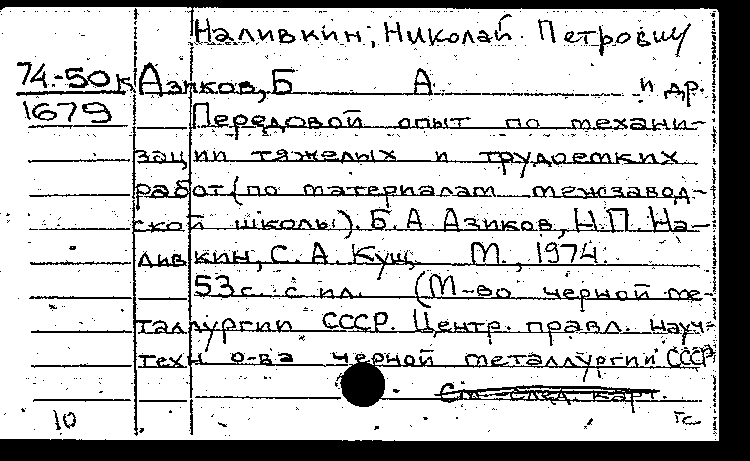 Наливкин, Николай Петрович
74.-50к Азиков, Б А и др.
1679 Передовой опыт по механи-
зации тяжелых и трудоемких
работ (по материалам межзавод-
ской школы). Б. А. Азиков, Н.П. На-
ливкин, С. А. Кущ. М., 1974.
53 с. с ил. (М-во черной ме-
таллургии СССР. Центр. правл. науч-
техн о-ва черной металлургии СССР
См. след. карт.
10 Тс